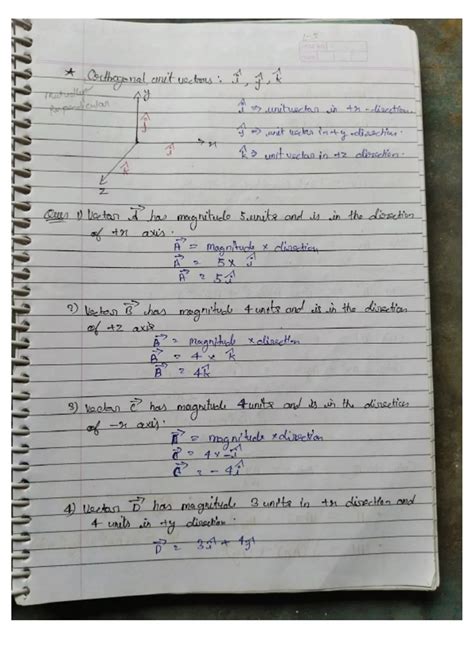 * Orthogonal unit vectors : î, ĵ, k̂
mutually perpendicular
y
ĵ
î
x
k̂
z
î ⇒ unit vector in +x-direction.
ĵ ⇒ unit vector in +y-direction.
k̂ ⇒ unit vector in +z direction.
Ques 1) Vector A⃗ has magnitude 5 units and is in the direction
of +x axis.
A⃗ = magnitude × direction
A⃗ = 5 × î
A⃗ = 5î
2) Vector B⃗ has magnitude 4 units and is in the direction
of +z axis
A⃗ = magnitude × direction
A⃗ = 4 × k̂
A⃗ = 4k̂
3) Vector C⃗ has magnitude 4 units and is in the direction
of -x axis.
C⃗ = magnitude × direction
C⃗ = 4 × -î
C⃗ = -4î
4) Vector D⃗ has magnitude 3 units in +x direction and
4 units in +y direction.
D⃗ = 3î + 4ĵ